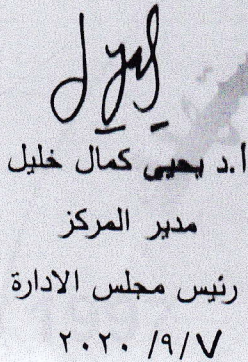 أ.د يحيى كمال خليل
مدير المركز
رئيس مجلس الادارة
٢٠٢٠/٩/٧